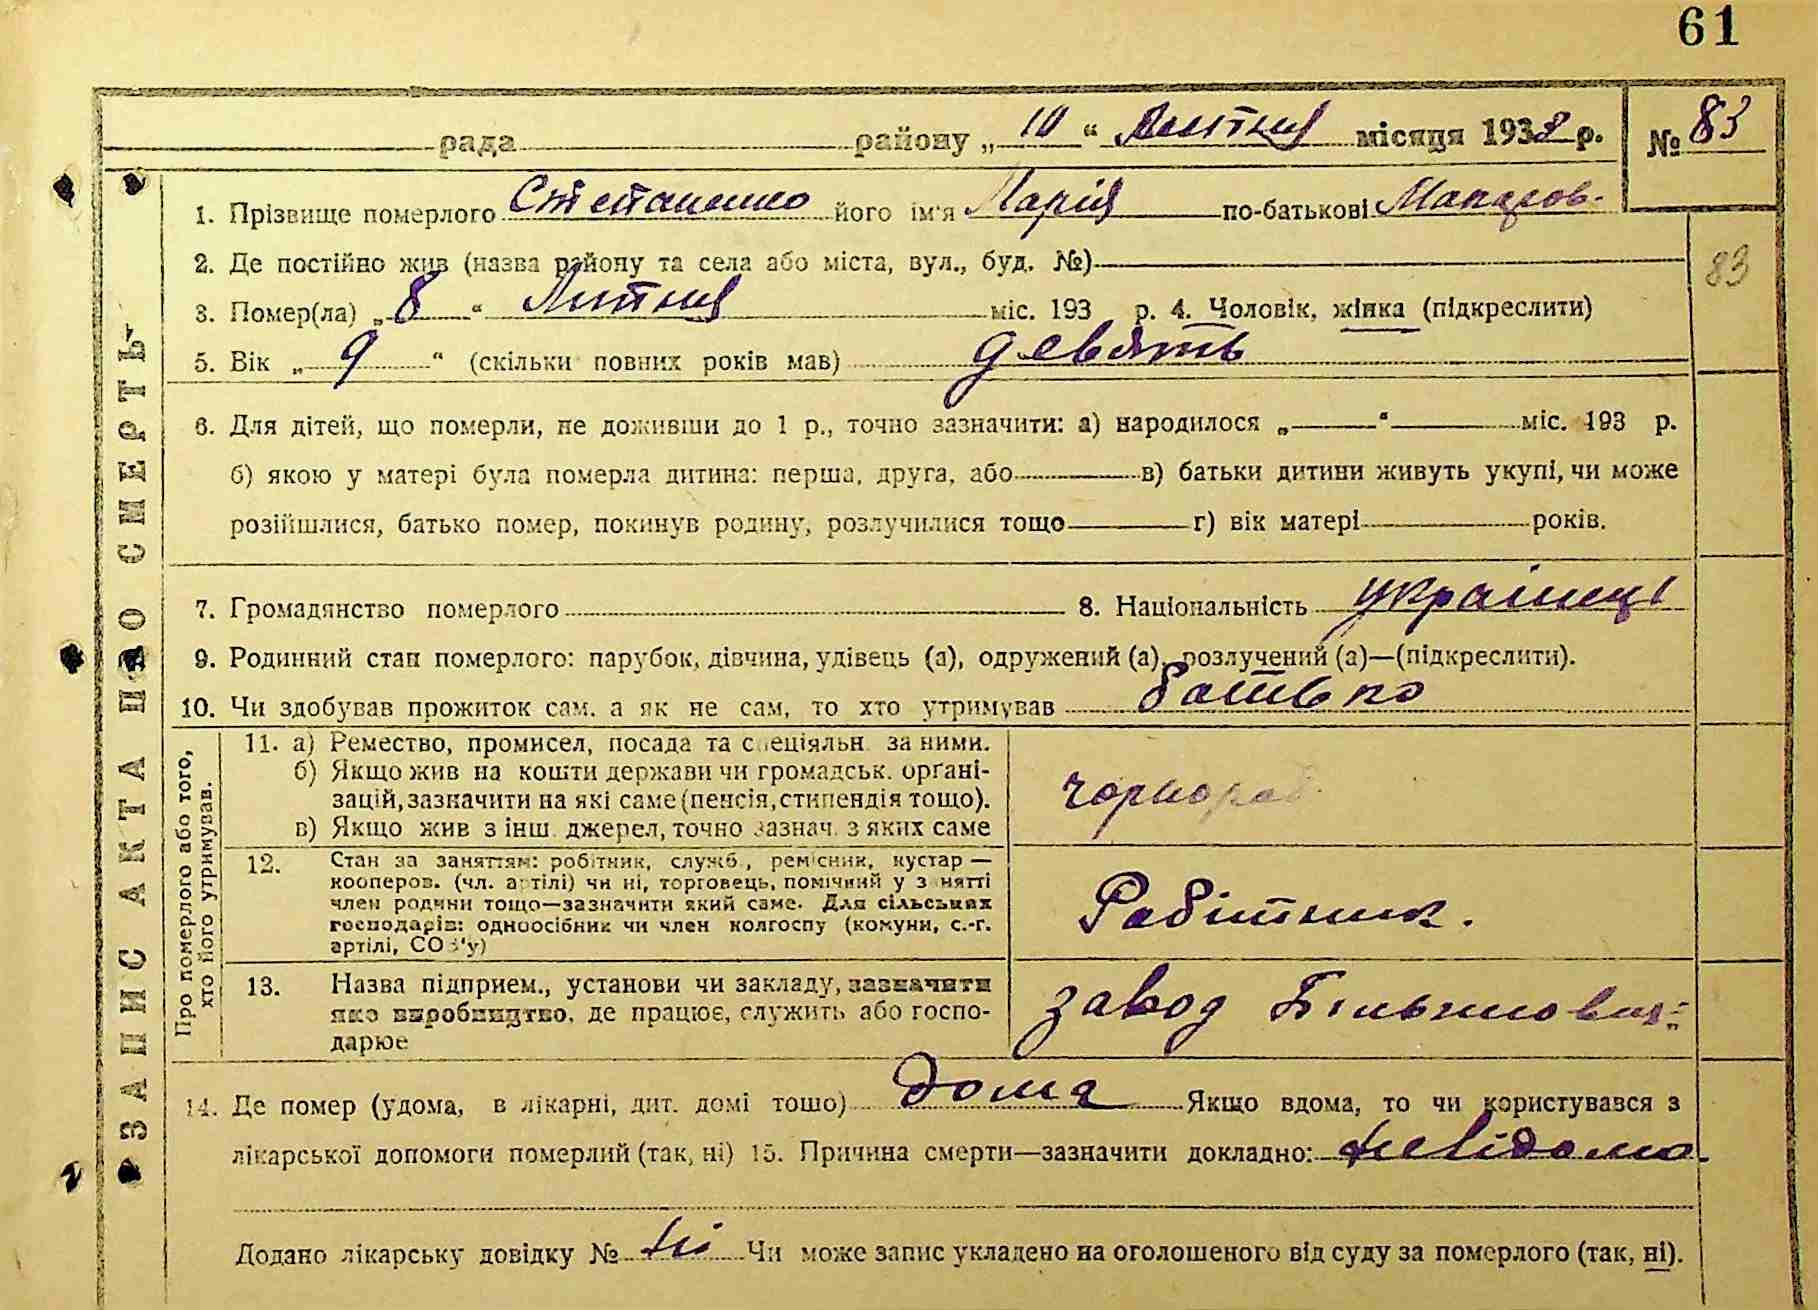 61
рада районy „ 10 “ Липня місяця 1932 р. № 83
1. Прізвище померлого Степаненко його ім'я Марія по-батькові
83
2. Де постійно жив (назва району та села або міста, вул., буд. №)
3. Помер(ла) „ 8 “ Липня міс. 193 р. 4. Чоловік, жінка (підкреслити)
5. Вік „ 9 “ (скільки повних років мав) девять
6. Для дітей, що померли, не доживши до 1 р., точно зазначити: а) народилося „ “ міс. 193 р.
б) якою у матері була померла дитина: перша, друга, або в) батьки дитини живуть укупі, чи може
розійшлися, батько помер, покинув родину, розлучилися тощо г) вік матері років.
7. Громадянство померлого 8. Національність україньці
9. Родинний стан померлого: парубок, дівчина, удівець (а), одружений (а), розлучений (а)—(підкреслити).
10. Чи здобував прожиток сам. а як не сам, то хто утримував батько
ЗАПИС АКТА ПРО СМЕРТЬ
Про померлого або того,
хто його утримував.
11. а) Ремество, промисел, посада та спеціяльн. за ними.
б) Якщо жив на кошти держави чи громадськ. орґані-
зацій, зазначити на які саме (пенсія, стипендія тощо).
в) Якщо жив з інш. джерел, точно зазнач. з яких саме
чорнороб.
12. Стан за заняттям: робітник, служб., ремісник, кустар —
кооперов. (чл. артілі) чи ні, торговець, помічний у занятті
член родини тощо—зазначити який саме. Для сільських
господарів: одноосібник чи член колгоспу (комуни, с.-г.
артілі, СОЗ'у)
Робітник.
13. Назва підприєм., установи чи закладу, зазначити
яко виробництво, де працює, служить або госпо-
дарює
завод Більшовик
14. Де помер (удома, в лікарні, дит. домі тощо) дома Якщо вдома, то чи користувався з
лікарської допомоги померлий (так, ні) 15. Причина смерти—зазначити докладно: невідома
Додано лікарську довідку № ні Чи може запис укладено на оголошеного від суду за померлого (так, ні).